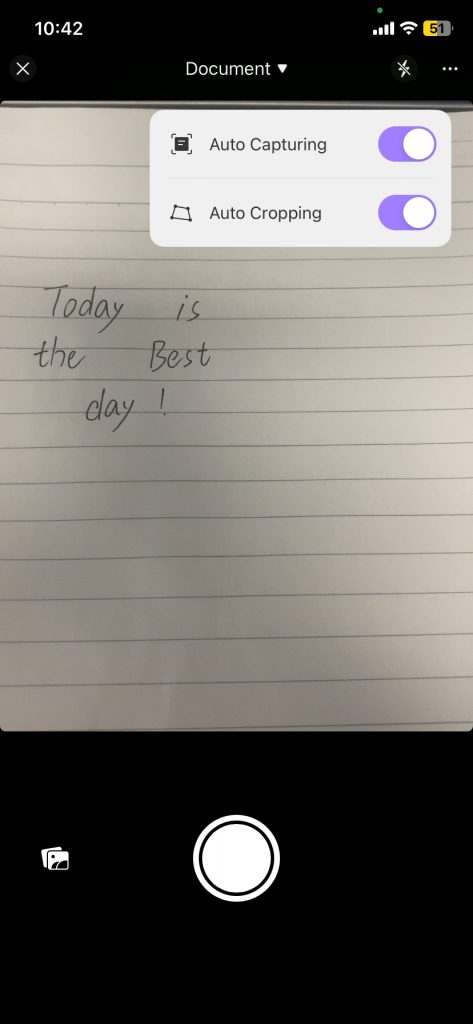 10:42
51
Document ▼
Auto Capturing
Auto Cropping
Today is
the Best
day !